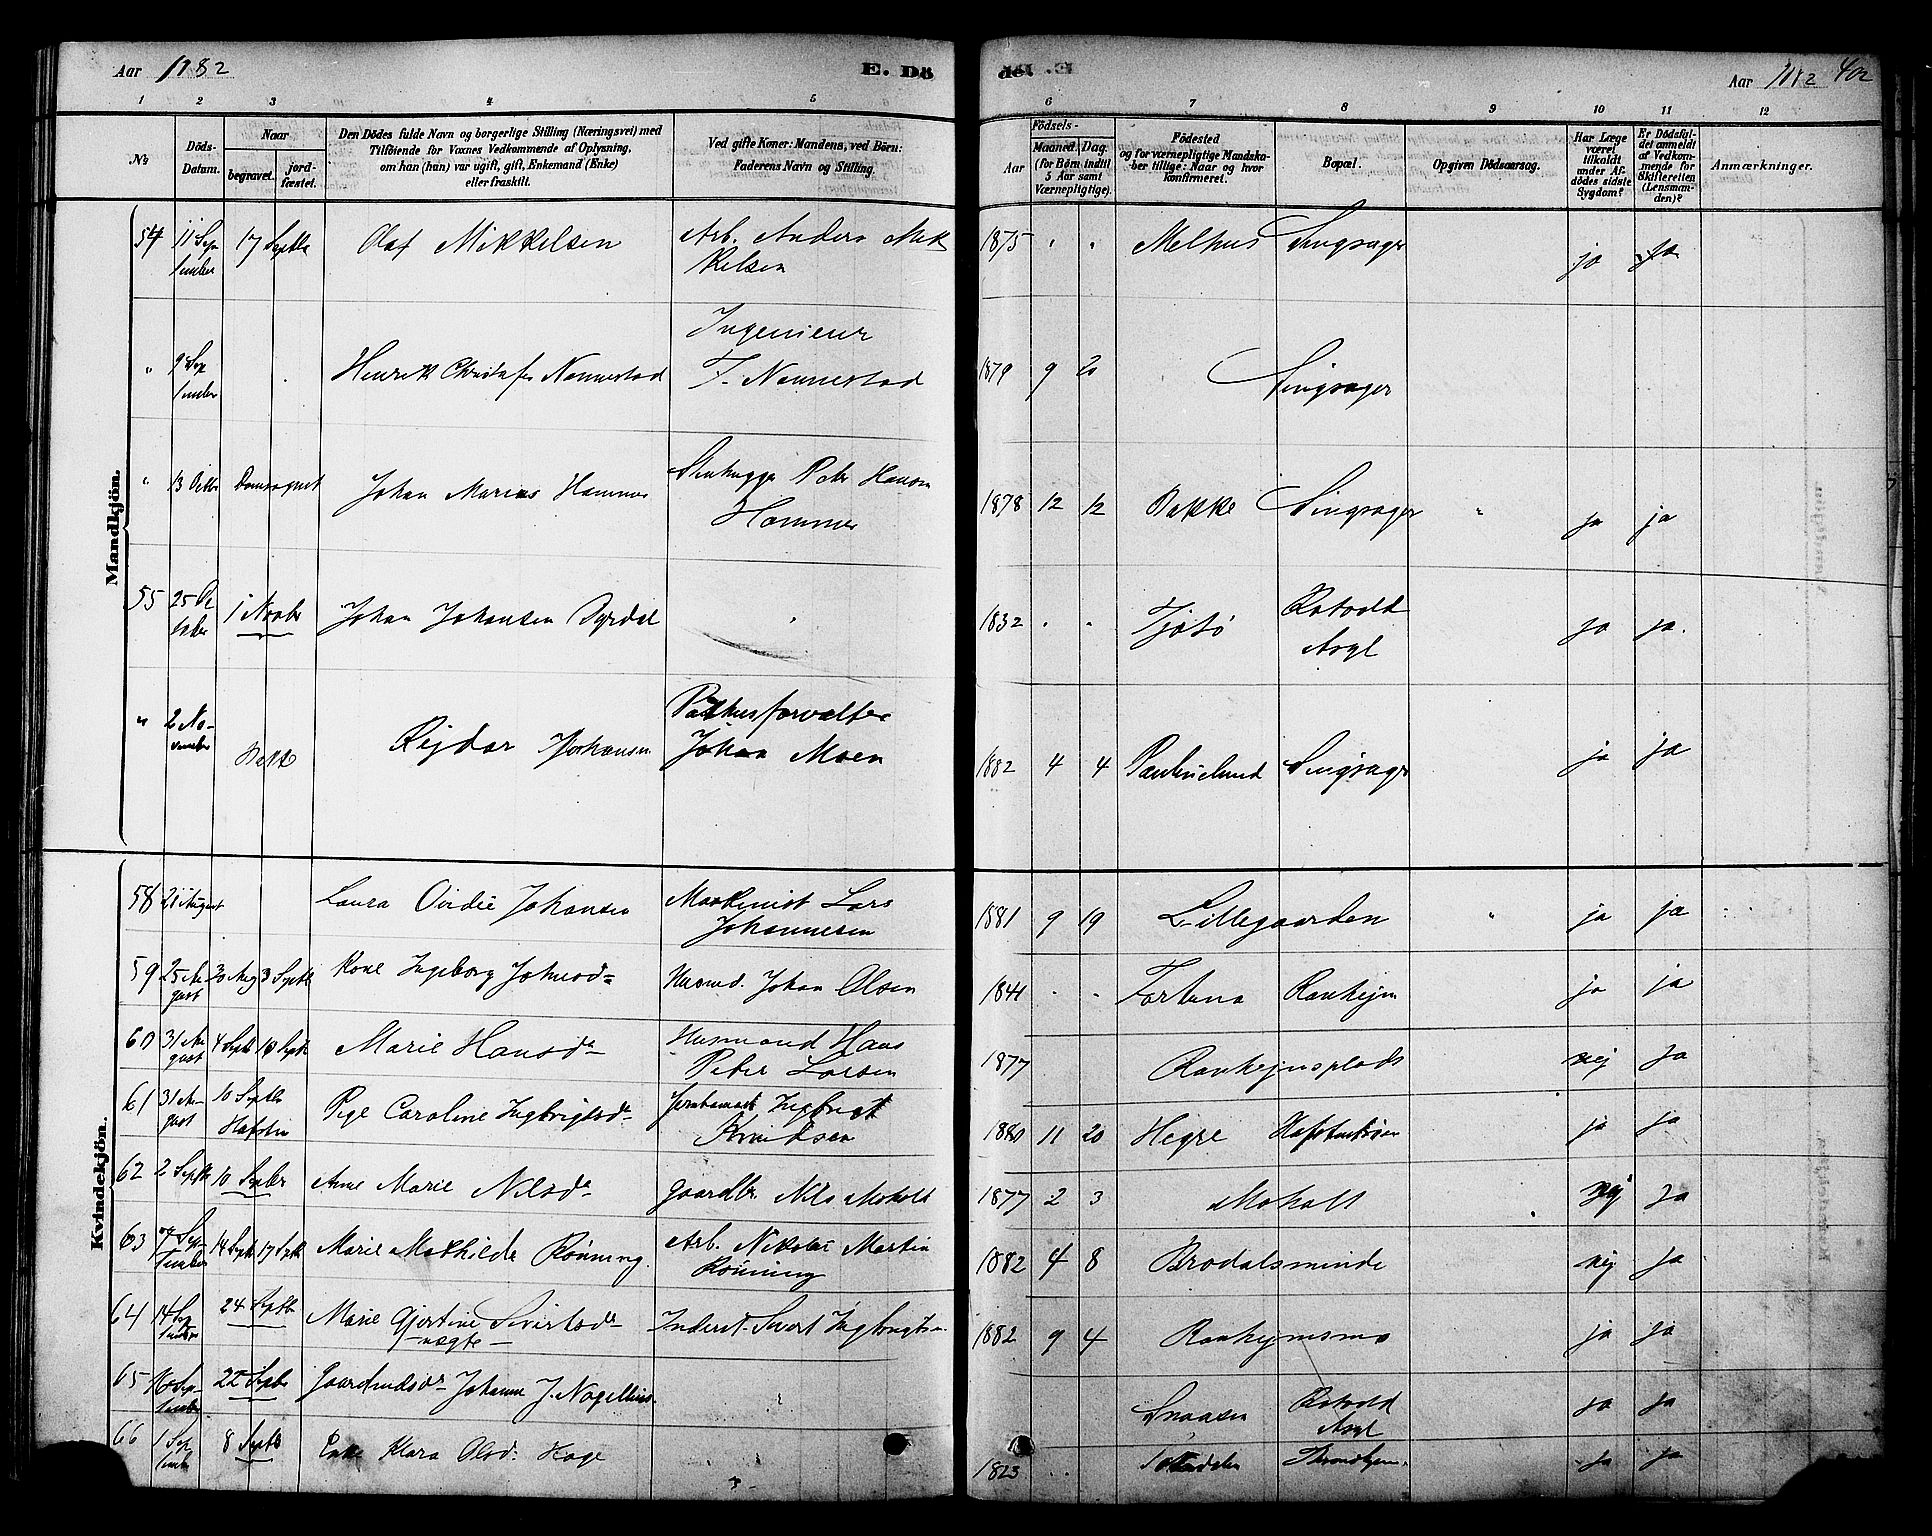 Aar 1882
E. Dö
de. E.
Aar 1882 402
1 2 3 4 5 6 7 8 9 10 11 12
No
Döds-Datum.
Naar
begravet.
jord-fæstet.
Den Dödes fulde Navn og borgerlige Stilling (Næringsvei) med
Tilföiende for Voxnes Vedkommende af Oplysning,
om han (hun) var ugift, gift, Enkemand (Enke)
eller fraskilt.
Ved gifte Koner: Mandens, ved Börn:
Faderens Navn og Stilling.
Födsels-
Aar
Maaned. Dag.
(for Börn indtil
5 Aar samt
Værnepligtige).
Födested
og for værnepligtige Mandska-
ber tillige: Naar og hvor
konfirmeret.
Bopæl.
Opgiven Dödsaarsag.
Har Læge
været
tilkaldt
under Af-
dödes sidste
Sygdom?
Er Dödsfal-
det anmeldt
af Vedkom-
mende for
Skifteretten
(Lensman-
den)?
Anmærkninger.
Mandkjön.
54 11 September 17 Septbr Olaf Mikkelsen Arb. Anders Mik
kelsen 1875 " " Melhus Singsager ja ja
" 9 September Henrik Christofer Nannestad Ingenieur
F. Nannestad 1879 9 20 Singsager
" 13 Octbr Johan Marius Hammer Stenhugger Peter Hanson
Hammer 1878 12 12 Bakke Singsager " ja ja
55 25 October 1 Novbr Johan Johansen Dyrdal 1832 " " Tjötö Rotvold
Asyl ja ja.
" 2 November Bakke Rejdar Johansen Pakhusforvalter
Johan Moen 1882 4 4 Paulinelund Singsager ja ja
Kvindekjön.
58 21 August Laura Ovidie Johansen Maskinist Lars
Johannesen 1881 9 19 Lillegaarden " ja ja
59 25 August 30 Aug 3 Septbr Kone Ingeborg Johnsd. Husmd. Johan Olsen 1841 " " Fortuna Ranhejm ja ja
60 31 August 4 Septbr Septbr Marie Hansd. Husmand Hans
Peter Larsen 1877 Ranhejmsplads nej ja
61 31 August 10 Septbr
Hafsten Pige Caroline Ingbrigtsd. Ingbrigt
Knudsen 1880 11 20 Hegre ja ja
62 2 Septbr 10 Septbr Anne Marie Nilsd. Gaardbr. Nils Moholt 1877 2 3 Moholt nej ja
63 September 14 Septbr 17 Septbr Marie Mathilde Rönning. Arb. Nikolai Martin
Rönning 1882 4 8 Brodalsminde nej ja
64 14 September 24 Septbr Marie Gjertine Sivertsd.
uægte Inderst. Sivert Ingbrigtsen 1882 9 4 Ranhejmsmo ja ja
65 September 22 Septbr Johanne J. Nagelhus. Snaasen Rotvold
Asyl ja ja
66 1 September 8 Septbr Enke Klara Olsd. Hage 1823 Throndhjem. ja ja